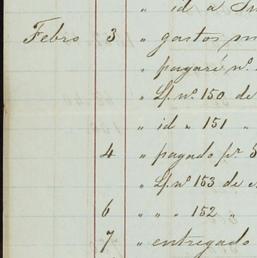 " id a
Febro 3 " gastos
" pagaré nº
" L/. nº 150 de
" id " 151 "
4 " pagado pr
" L/. nº 153 de
6 " " " 152 "
7 " entregado